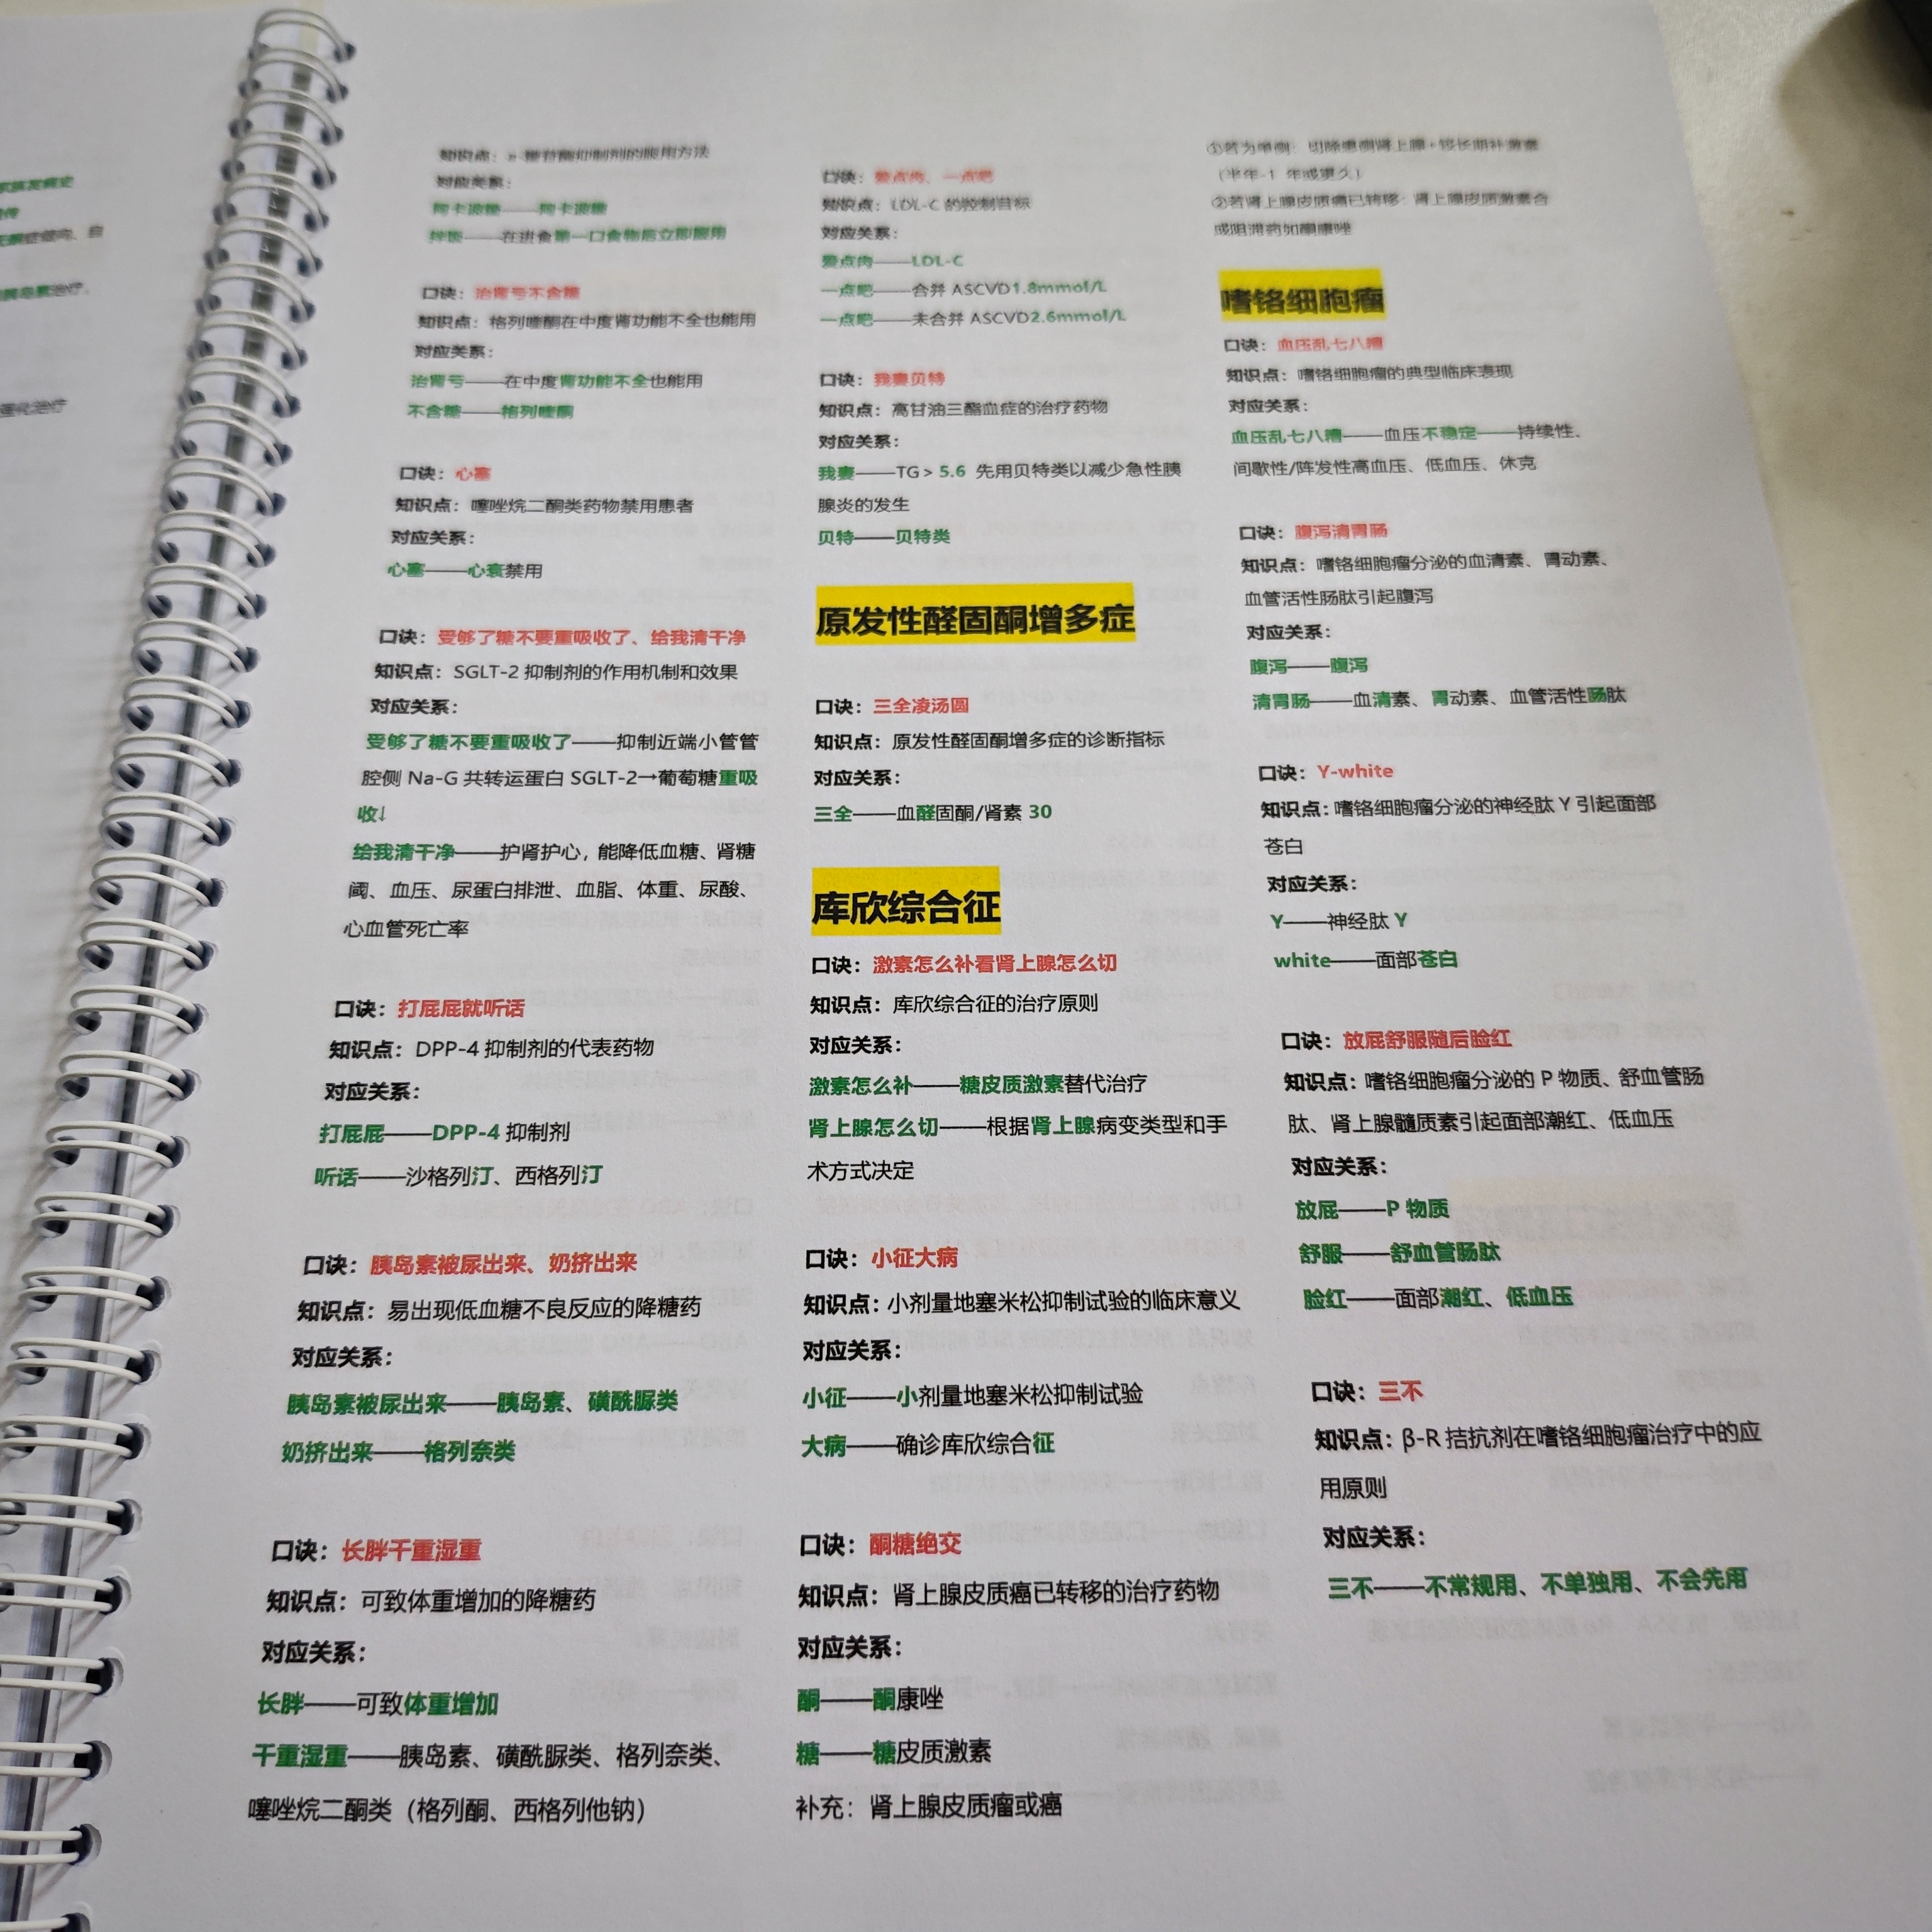 家族发病史
症倾向、自
胰岛素治疗，
强化治疗
知识点：α-糖苷酶抑制剂的服用方法
对应关系：
阿卡波糖——阿卡波糖
——在进食第一口食物后立即服用
口诀：治肾亏不含糖
知识点：格列喹酮在中度肾功能不全也能用
对应关系：
治肾亏——在中度肾功能不全也能用
不含糖——格列喹酮
口诀：心塞
知识点：噻唑烷二酮类药物禁用患者
对应关系：
心塞——心衰禁用
口诀：受够了糖不要重吸收了、给我清干净
知识点：SGLT-2 抑制剂的作用机制和效果
对应关系：
受够了糖不要重吸收了——抑制近端小管管
腔侧 Na-G 共转运蛋白 SGLT-2→葡萄糖重吸
收↓
给我清干净——护肾护心，能降低血糖、肾糖
阈、血压、尿蛋白排泄、血脂、体重、尿酸、
心血管死亡率
口诀：打屁屁就听话
知识点：DPP-4 抑制剂的代表药物
对应关系：
打屁屁——DPP-4 抑制剂
听话——沙格列汀、西格列汀
口诀：胰岛素被尿出来、奶挤出来
知识点：易出现低血糖不良反应的降糖药
对应关系：
胰岛素被尿出来——胰岛素、磺酰脲类
奶挤出来——格列奈类
口诀：长胖干重湿重
知识点：可致体重增加的降糖药
对应关系：
长胖——可致体重增加
干重湿重——胰岛素、磺酰脲类、格列奈类、
噻唑烷二酮类（格列酮、西格列他钠）
口诀：要点肉、一点吧
知识点：LDL-C 的控制目标
对应关系：
要点肉——LDL-C
一点吧——合并 ASCVD1.8mmol/L
一点吧——未合并 ASCVD2.6mmol/L
口诀：我妻贝特
知识点：高甘油三酯血症的治疗药物
对应关系：
我妻——TG > 5.6 先用贝特类以减少急性胰
腺炎的发生
贝特——贝特类
原发性醛固酮增多症
口诀：三全凌汤圆
知识点：原发性醛固酮增多症的诊断指标
对应关系：
三全——血醛固酮/肾素 30
库欣综合征
口诀：激素怎么补看肾上腺怎么切
知识点：库欣综合征的治疗原则
对应关系：
激素怎么补——糖皮质激素替代治疗
肾上腺怎么切——根据肾上腺病变类型和手
术方式决定
口诀：小征大病
知识点：小剂量地塞米松抑制试验的临床意义
对应关系：
小征——小剂量地塞米松抑制试验
大病——确诊库欣综合征
口诀：酮糖绝交
知识点：肾上腺皮质癌已转移的治疗药物
对应关系：
酮——酮康唑
糖——糖皮质激素
补充：肾上腺皮质瘤或癌
①若为单侧：切除患侧肾上腺+较长期补激素
（半年-1 年或更久）
②若肾上腺皮质癌已转移：肾上腺皮质激素合
成阻滞药如酮康唑
嗜铬细胞瘤
口诀：血压乱七八糟
知识点：嗜铬细胞瘤的典型临床表现
对应关系：
血压乱七八糟——血压不稳定——持续性、
间歇性/阵发性高血压、低血压、休克
口诀：腹泻清胃肠
知识点：嗜铬细胞瘤分泌的血清素、胃动素、
血管活性肠肽引起腹泻
对应关系：
腹泻——腹泻
清胃肠——血清素、胃动素、血管活性肠肽
口诀：Y-white
知识点：嗜铬细胞瘤分泌的神经肽 Y 引起面部
苍白
对应关系：
Y——神经肽 Y
white——面部苍白
口诀：放屁舒服随后脸红
知识点：嗜铬细胞瘤分泌的 P 物质、舒血管肠
肽、肾上腺髓质素引起面部潮红、低血压
对应关系：
放屁——P 物质
舒服——舒血管肠肽
脸红——面部潮红、低血压
口诀：三不
知识点：β-R 拮抗剂在嗜铬细胞瘤治疗中的应
用原则
对应关系：
三不——不常规用、不单独用、不会先用